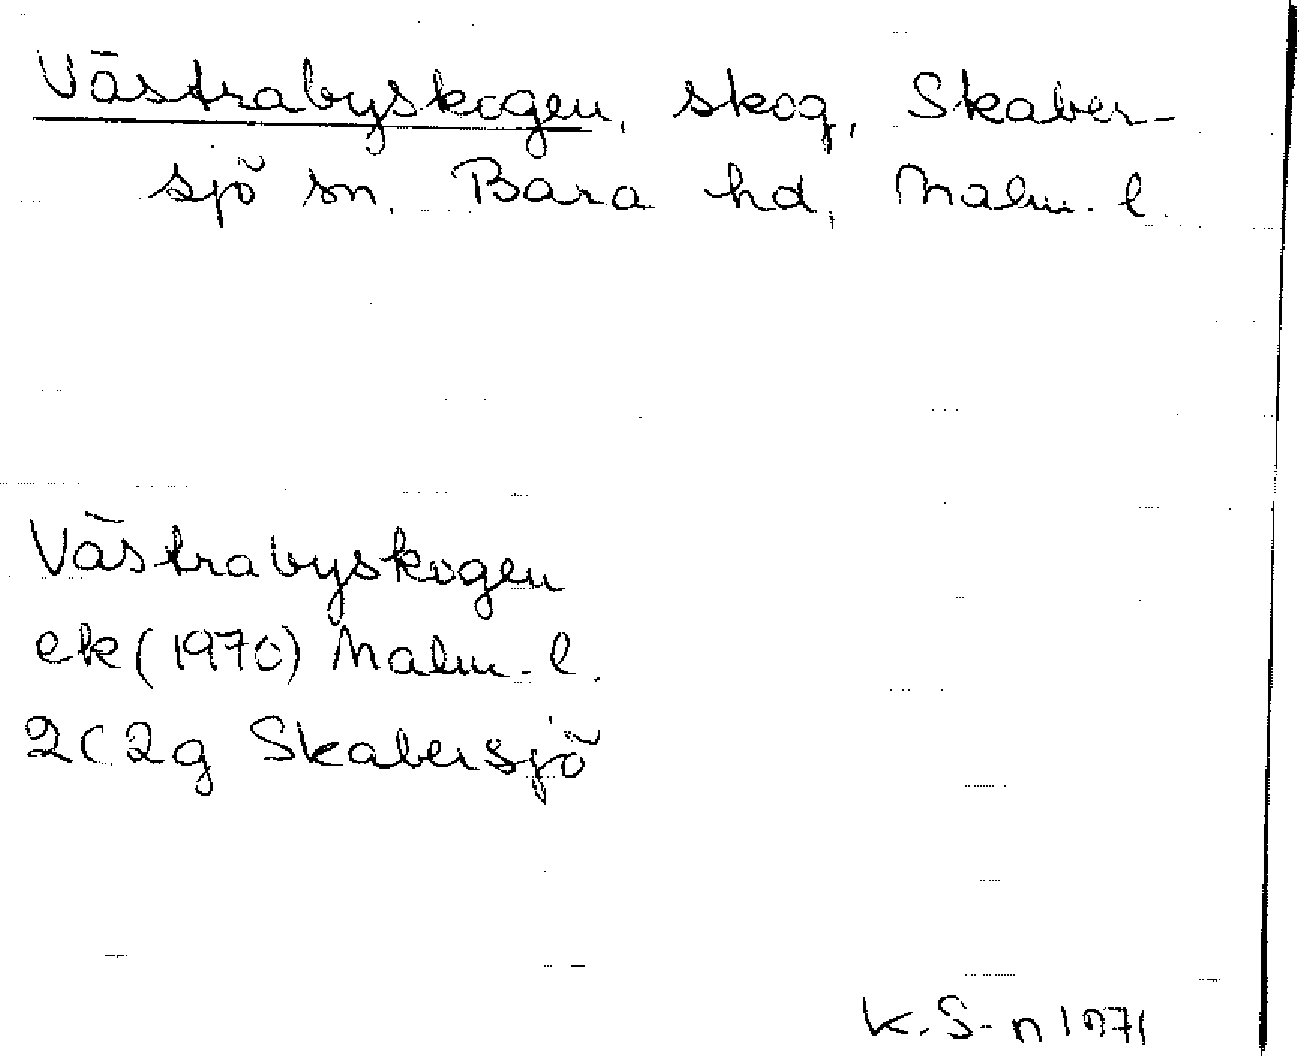 Västrabyskogen, skog, Skaber-
sjö sn, Bara hd, Malm. l.
Västrabyskogen
ek (1970) Malm. l.
2C2g Skabersjö
K. S-n 1971